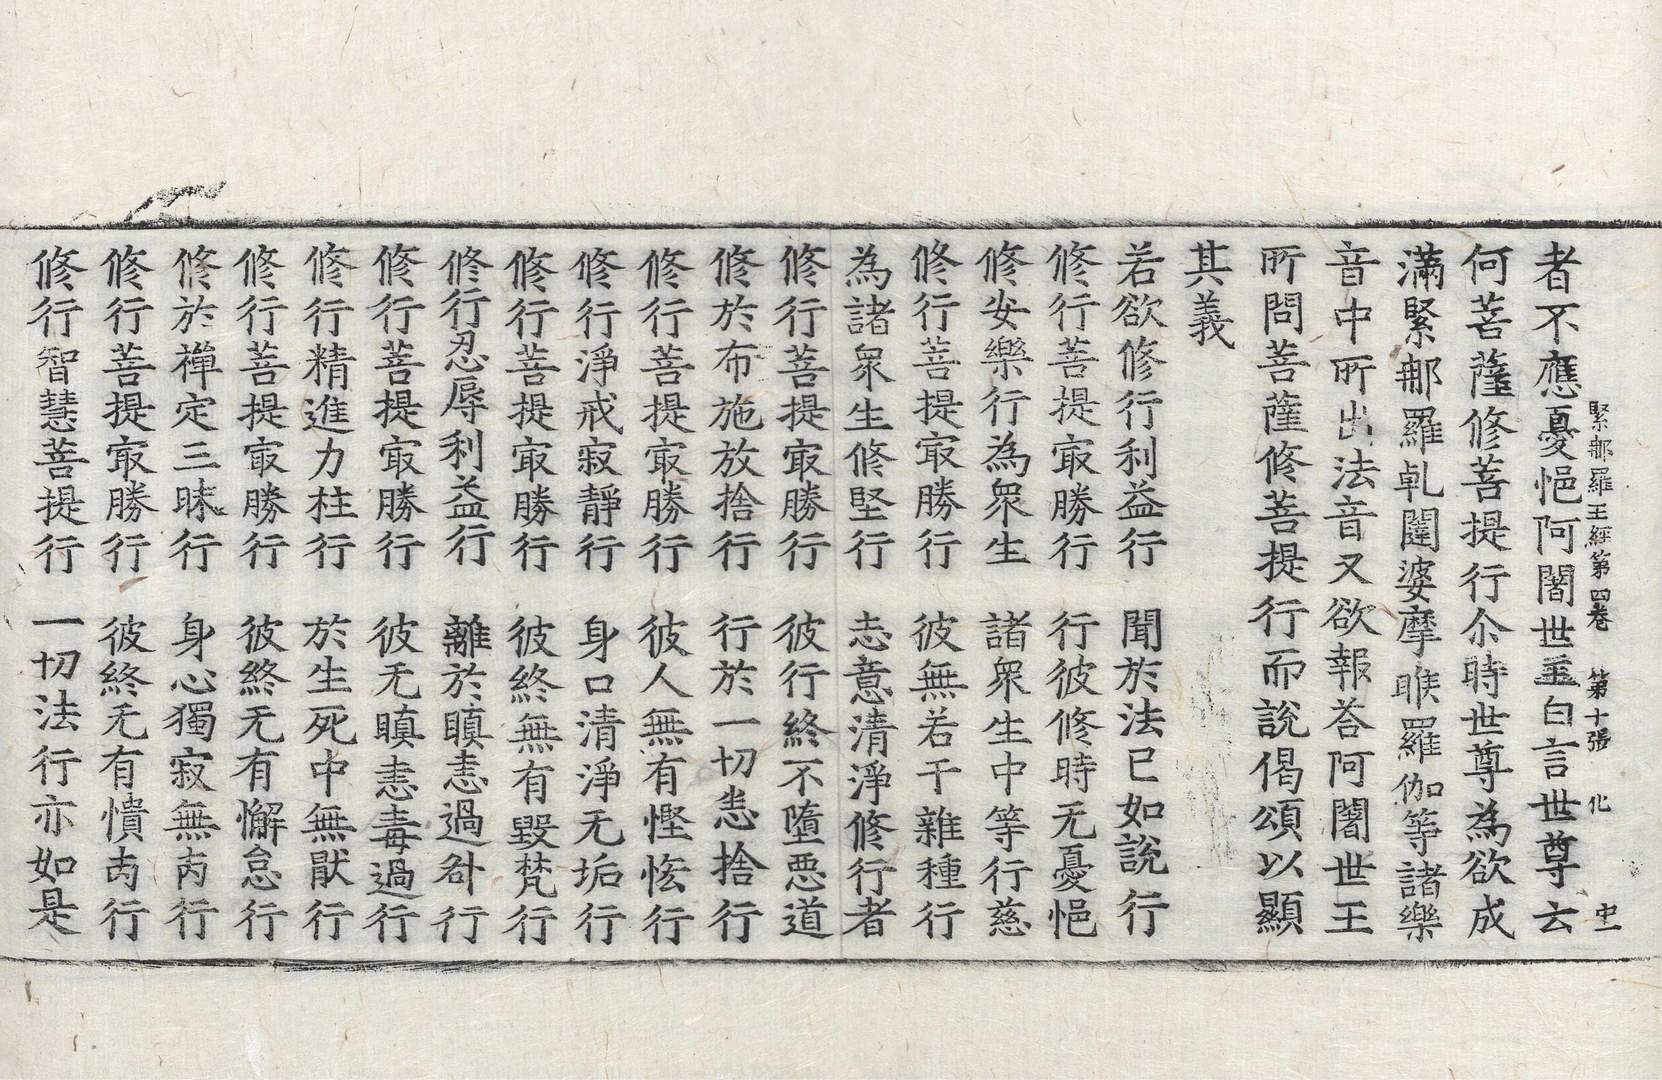 緊那羅王經第四卷　第十張　化
者不應憂悒阿闍世王白言世尊云
何菩薩修菩提行尒時世尊為欲成
滿緊那羅乹闥婆摩睺羅伽等諸樂
音中所出法音又欲報荅阿闍世王
所問菩薩修菩提行而說偈頌以顯
其義
若欲修行利益行　聞於法已如說行
修行菩提㝡勝行　行彼修時无憂悒
修安樂行為衆生　諸衆生中等行慈
修行菩提㝡勝行　彼無若干雜種行
為諸衆生修堅行　志意清淨修行者
修行菩提㝡勝行　彼行終不墮惡道
修於布施放捨行　行於一切悉捨行
修行菩提㝡勝行　彼人無有慳悋行
修行淨戒寂靜行　身口清淨无垢行
修行菩提㝡勝行　彼終無有毀梵行
修行忍辱利益行　離於瞋恚過咎行
修行菩提㝡勝行　彼无瞋恚毒過行
修行精進力柱行　於生死中無猒行
修行菩提㝡勝行　彼終无有懈怠行
修於禪定三昧行　身心獨寂無丙行
修行菩提㝡勝行　彼終无有憒丙行
修行智慧菩提行　一切法行亦如是